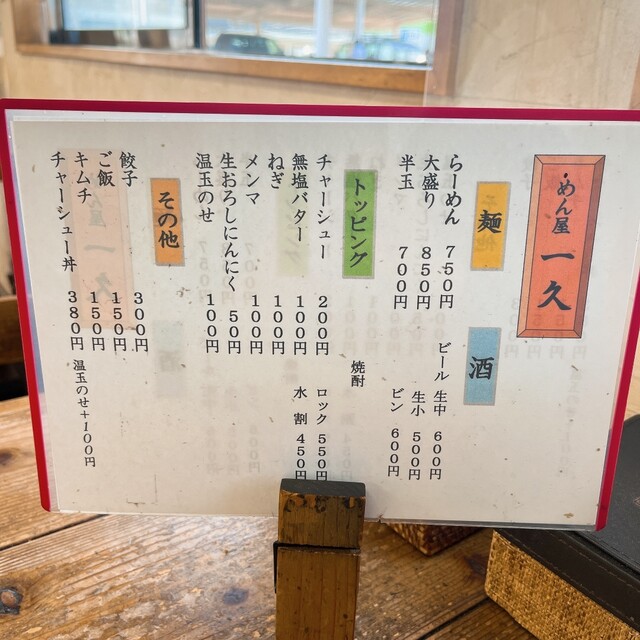 めん屋 一久
麺
らーめん 750円
大盛り 850円
半玉 700円
酒
ビール 生中 600円
生小 500円
ビン 600円
トッピング
チャーシュー 200円
無塩バター 100円
ねぎ 100円
メンマ 100円
生おろしにんにく 50円
温玉のせ 100円
焼酎
ロック 550円
水割 450円
その他
餃子 300円
ご飯 150円
キムチ 150円
チャーシュー丼 380円 温玉のせ+100円